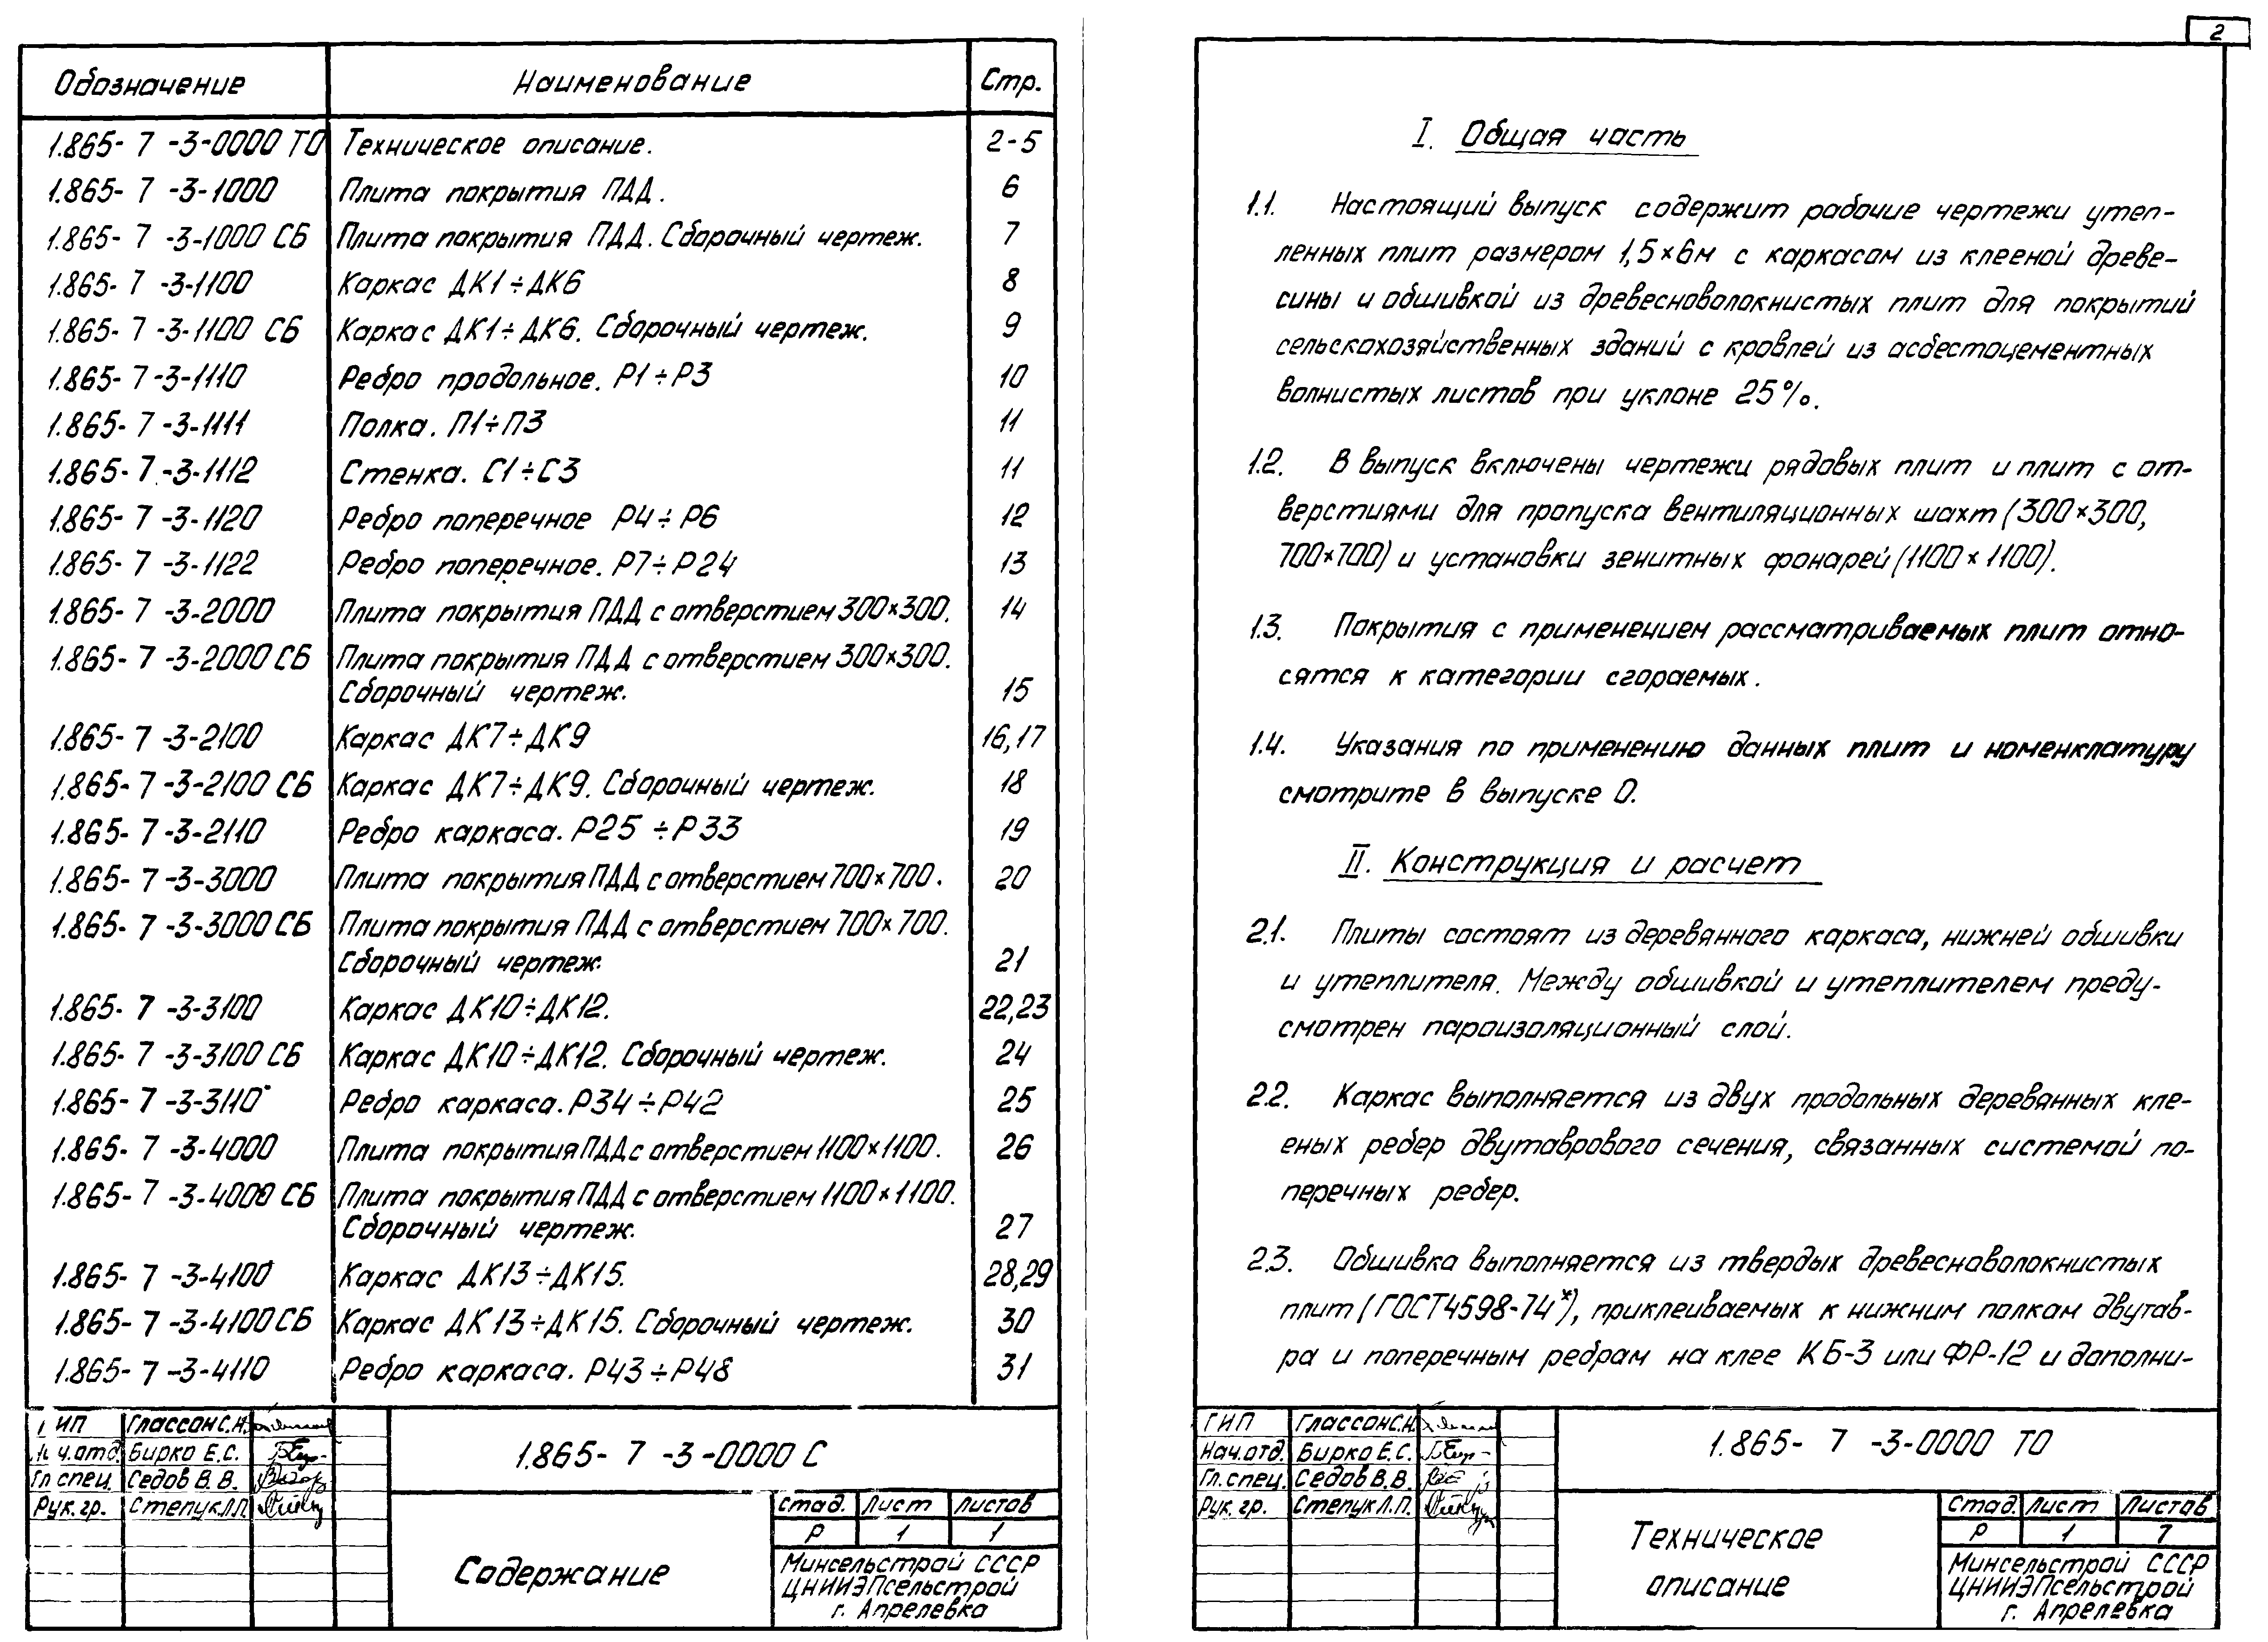 Обозначение Наименование Стр.
1.865- 7 -3-0000 ТО Техническое описание. 2-5
1.865- 7 -3-1000 Плита покрытия ПДД. 6
1.865- 7 -3-1000 СБ Плита покрытия ПДД. Сборочный чертеж. 7
1.865- 7 -3-1100 Каркас ДК1÷ДК6 8
1.865- 7 -3-1100 СБ Каркас ДК1÷ДК6. Сборочный чертеж. 9
1.865- 7 -3-1110 Ребро продольное. Р1÷Р3 10
1.865- 7 -3-1111 Полка. П1÷П3 11
1.865- 7 -3-1112 Стенка. С1÷С3 11
1.865- 7 -3-1120 Ребро поперечное Р4÷Р6 12
1.865- 7 -3-1122 Ребро поперечное. Р7÷Р24 13
1.865- 7 -3-2000 Плита покрытия ПДД с отверстием 300×300. 14
1.865- 7 -3-2000 СБ Плита покрытия ПДД с отверстием 300×300.
Сборочный чертеж. 15
1.865- 7 -3-2100 Каркас ДК7÷ДК9 16,17
1.865- 7 -3-2100 СБ Каркас ДК7÷ДК9. Сборочный чертеж. 18
1.865- 7 -3-2110 Ребро каркаса. Р25 ÷Р33 19
1.865- 7 -3-3000 Плита покрытия ПДД с отверстием 700×700. 20
1.865- 7 -3-3000 СБ Плита покрытия ПДД с отверстием 700×700.
Сборочный чертеж. 21
1.865- 7 -3-3100 Каркас ДК10÷ДК12. 22,23
1.865- 7 -3-3100 СБ Каркас ДК10÷ДК12. Сборочный чертеж. 24
1.865- 7 -3-3110 Ребро каркаса. Р34÷Р42 25
1.865- 7 -3-4000 Плита покрытия ПДД с отверстием 1100×1100. 26
1.865- 7 -3-4000 СБ Плита покрытия ПДД с отверстием 1100×1100.
Сборочный чертеж. 27
1.865- 7 -3-4100 Каркас ДК13÷ДК15. 28,29
1.865- 7 -3-4100 СБ Каркас ДК13÷ДК15. Сборочный чертеж. 30
1.865- 7 -3-4110 Ребро каркаса. Р43÷Р48 31
ГИП Глассон С.Н.
Нач.отд. Бирко Е.С.
Гл.спец. Седов В.В.
Рук.гр. Степук Л.П.
1.865- 7 -3-0000 С
Содержание
Стад. Лист Листов
Р 1 1
Минсельстрой СССР
ЦНИИЭПсельстрой
г. Апрелевка
2
I. Общая часть
1.1. Настоящий выпуск содержит рабочие чертежи утеп-
ленных плит размером 1,5×6м с каркасом из клееной древе-
сины и обшивкой из древесноволокнистых плит для покрытий
сельскохозяйственных зданий с кровлей из асбестоцементных
волнистых листов при уклоне 25%.
1.2. В выпуск включены чертежи рядовых плит и плит с от-
верстиями для пропуска вентиляционных шахт (300×300,
700×700) и установки зенитных фонарей (1100×1100).
1.3. Покрытия с применением рассматриваемых плит отно-
сятся к категории сгораемых.
1.4. Указания по применению данных плит и номенклатуру
смотрите в выпуске 0.
II. Конструкция и расчет
2.1. Плиты состоят из деревянного каркаса, нижней обшивки
и утеплителя. Между обшивкой и утеплителем преду-
смотрен пароизоляционный слой.
2.2. Каркас выполняется из двух продольных деревянных кле-
еных ребер двутаврового сечения, связанных системой по-
перечных ребер.
2.3. Обшивка выполняется из твердых древесноволокнистых
плит (ГОСТ4598-74*), приклеиваемых к нижним полкам двутав-
ра и поперечным ребрам на клее КБ-3 или ФР-12 и дополни-
ГИП Глассон С.Н.
Нач.отд. Бирко Е.С.
Гл.спец. Седов В.В.
Рук.гр. Степук Л.П.
1.865- 7 -3-0000 ТО
Техническое
описание
Стад. Лист Листов
Р 1 7
Минсельстрой СССР
ЦНИИЭПсельстрой
г. Апрелевка